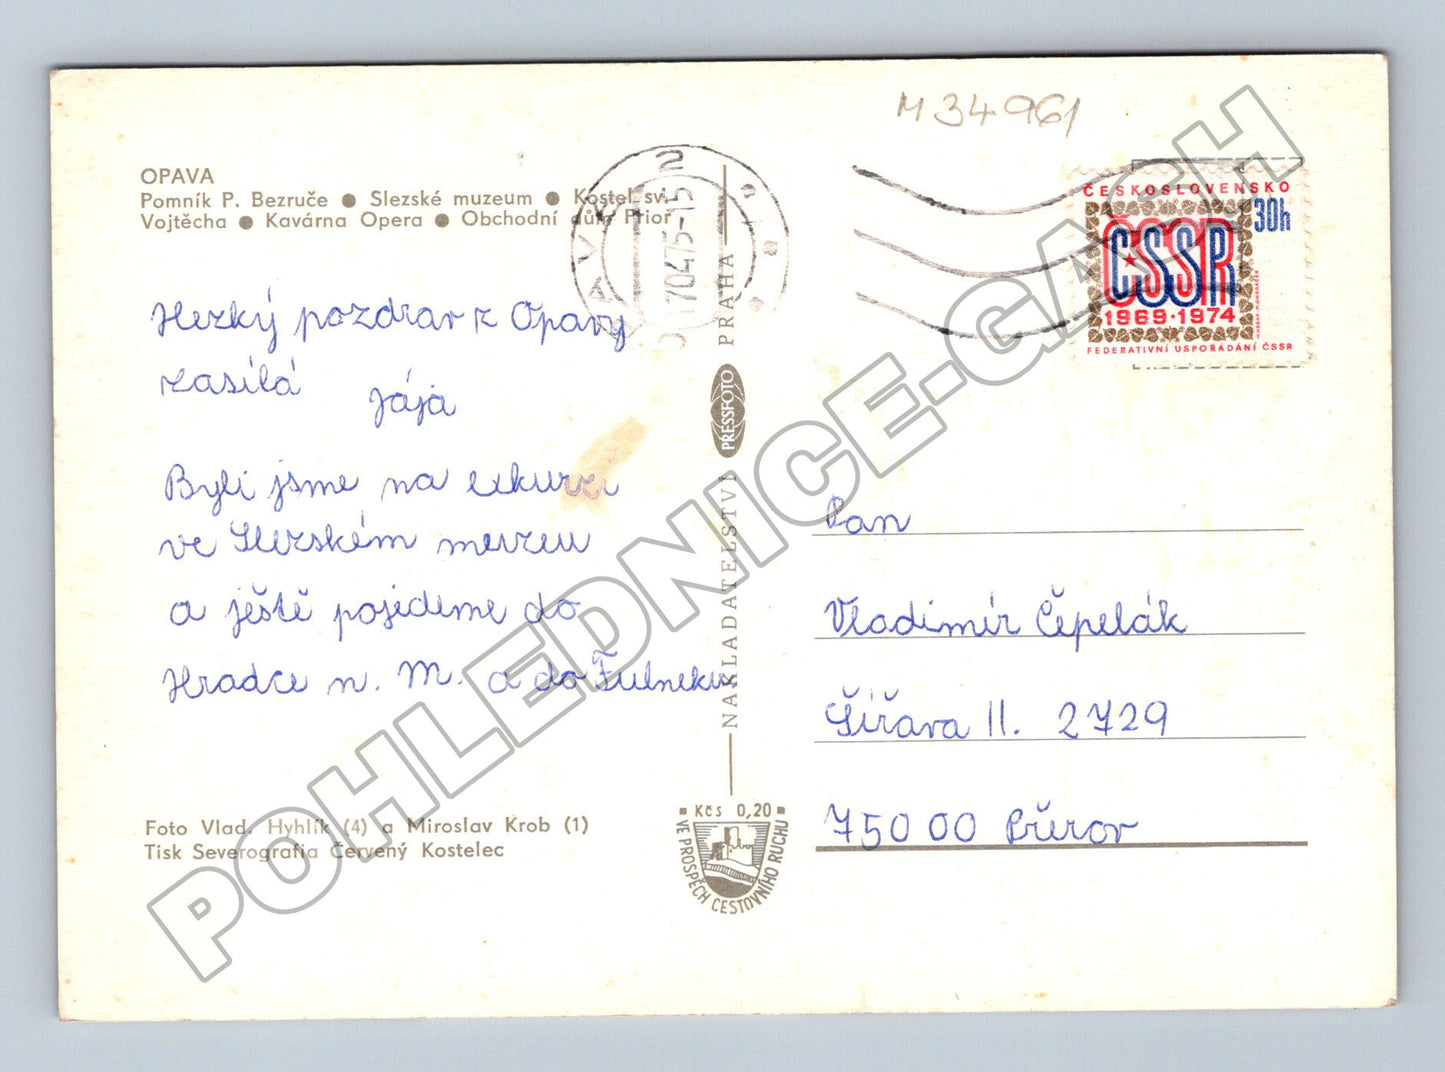 M 34961
OPAVA
Pomník P. Bezruče ● Slezské muzeum ● Kostel sv.
Vojtěcha ● Kavárna Opera ● Obchodní dům Prior
OPAVA 2
17.04.75-15
ČESKOSLOVENSKO
30h
ČSSR
1969·1974
FEDERATIVNÍ USPOŘÁDÁNÍ ČSSR
Hezký pozdrav z Opavy
zasílá Jája
Byli jsme na exkurzi
ve Slezském muzeu
a ještě pojedeme do
Hradce n. M. a do Fulneku
NAKLADATELSTVÍ PRESSFOTO PRAHA
Pan
Vladimír Čepelák
Šířava II. 2729
750 00 Přerov
Foto Vlad. Hyhlík (4) a Miroslav Krob (1)
Tisk Severografia Červený Kostelec
Kčs 0,20
VE PROSPĚCH CESTOVNÍHO RUCHU
POHLEDNICE-GASH